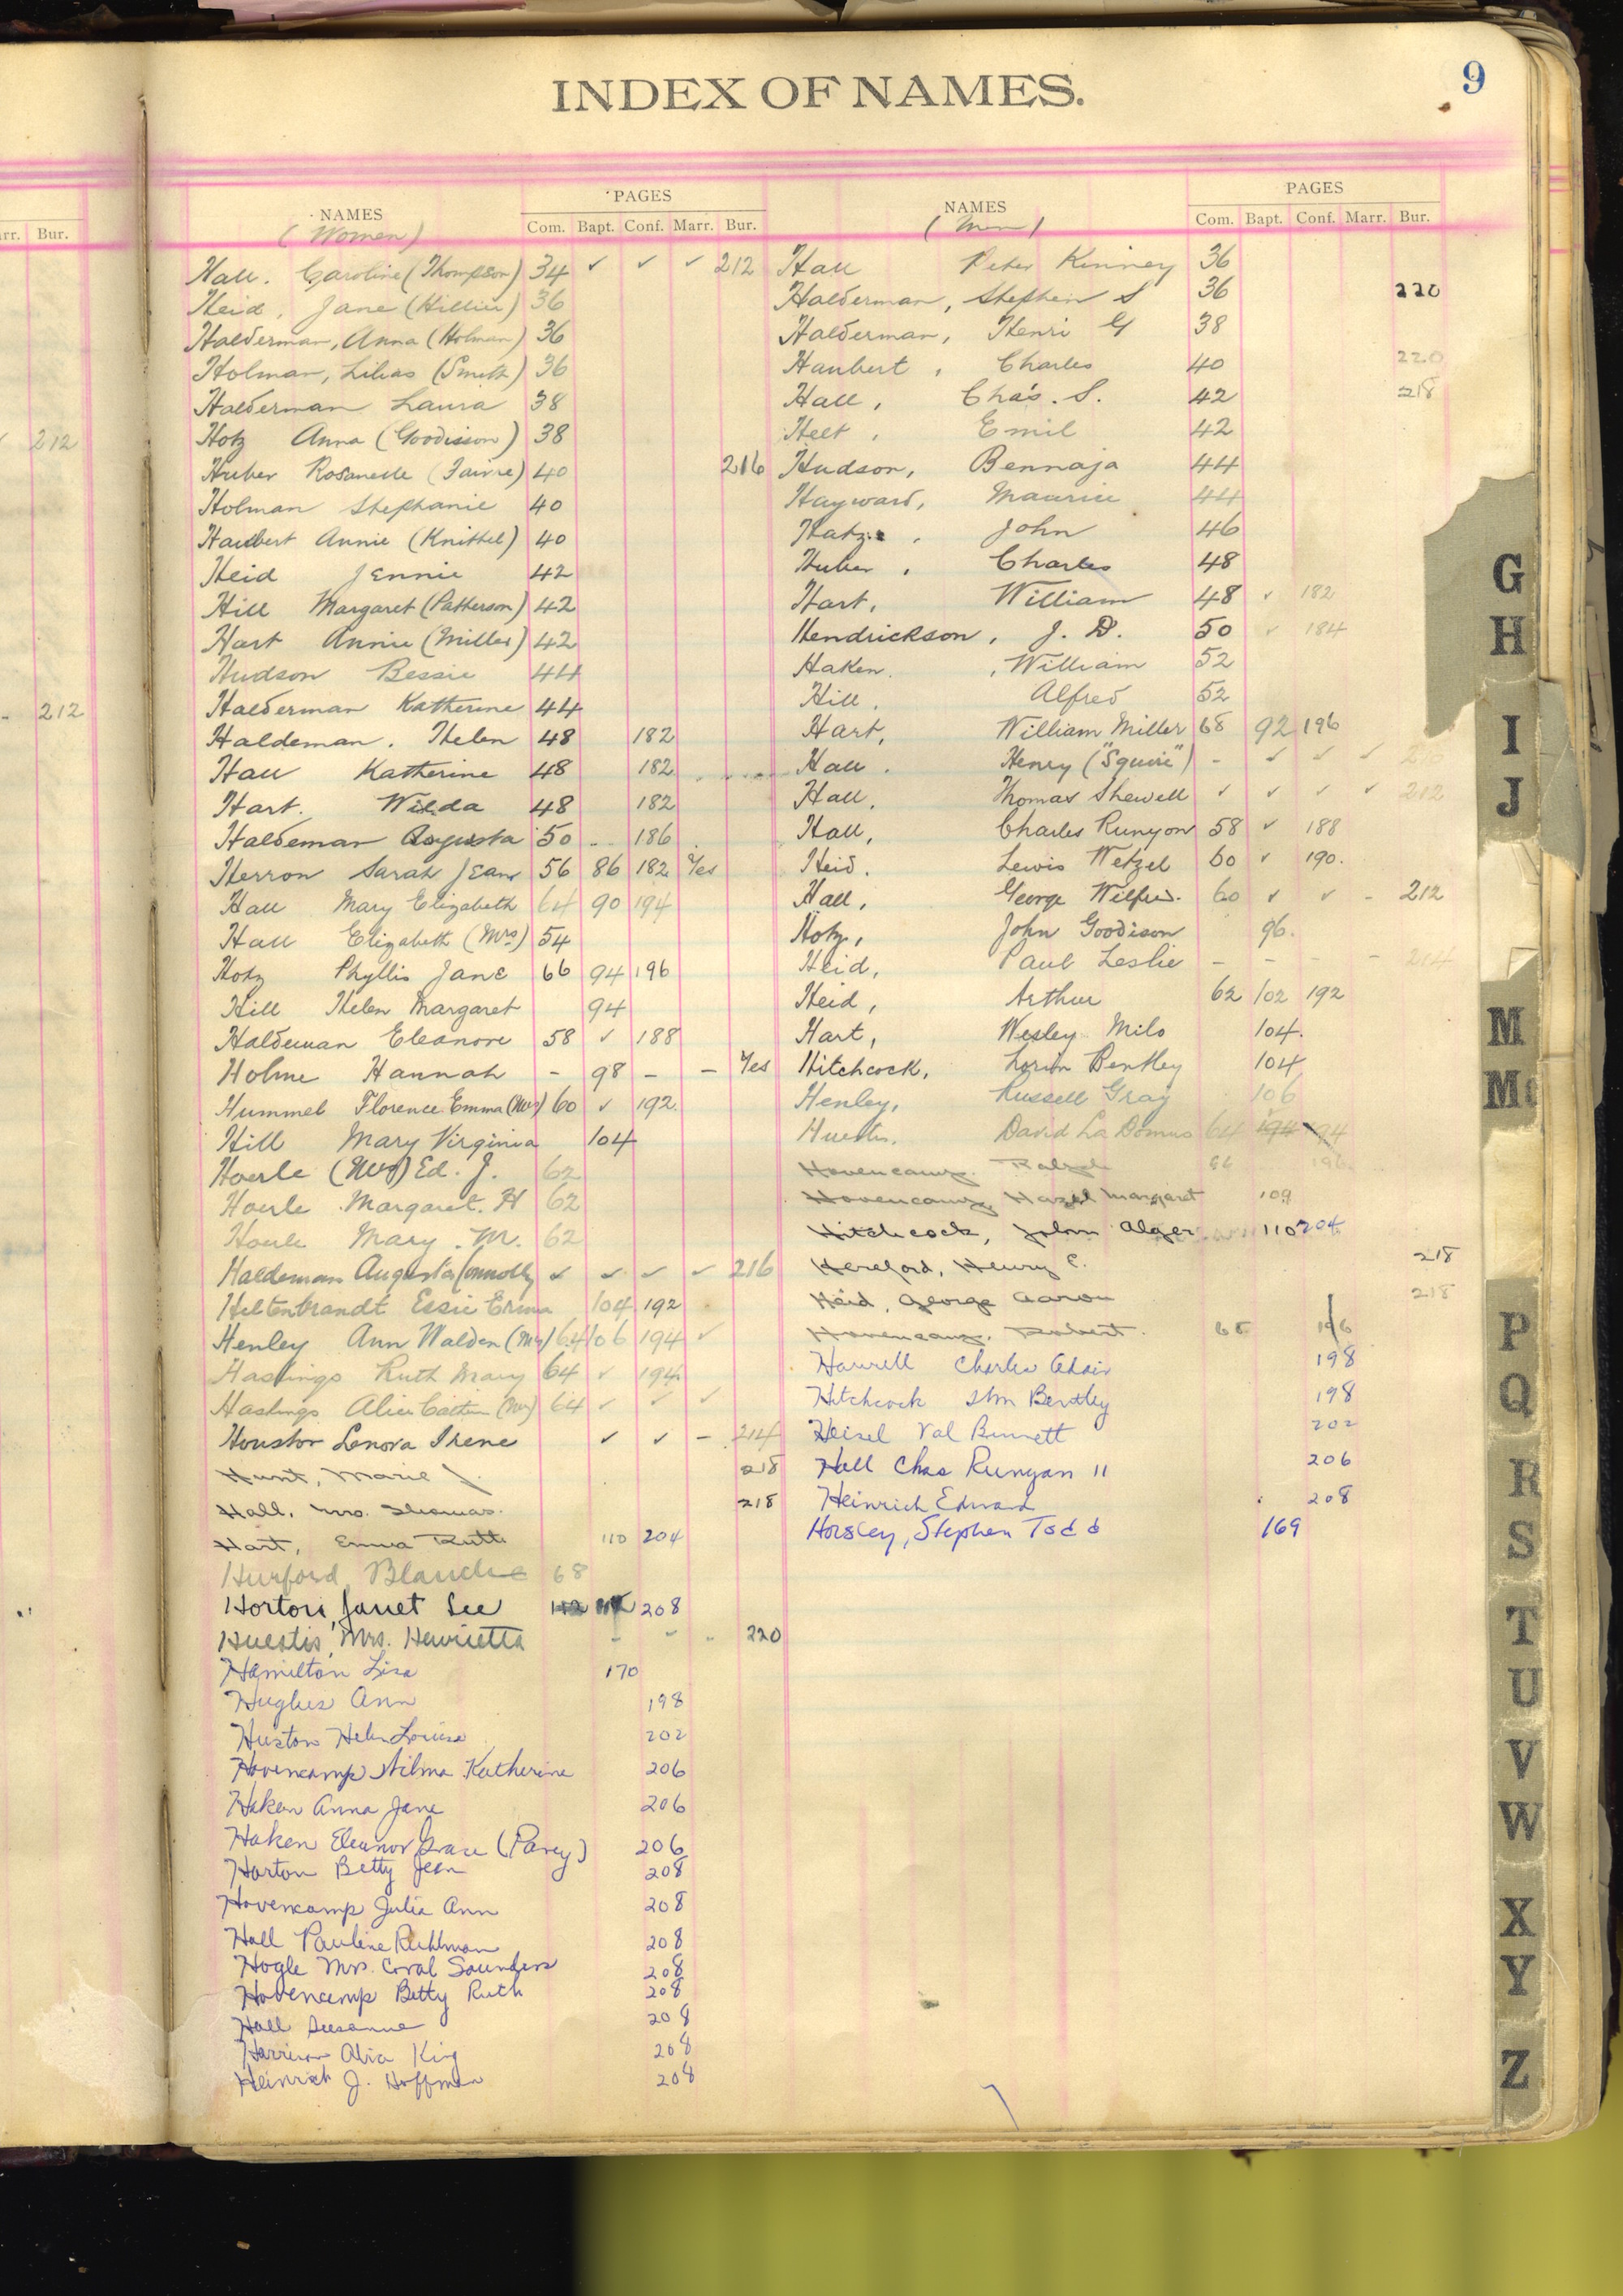 INDEX OF NAMES.
9
NAMES
(Women)
PAGES
Com. Bapt. Conf. Marr. Bur.
Hall. Caroline (Thompson) 34 ✓ ✓ ✓ 212
Heid, Jane (Hillier) 36
Halderman, Anna (Holman) 36
Holman, Lilias (Smith) 36
Halderman Laura 38
Hotz Anna (Goodisson) 38
Huber Rosanelle (Faivre) 40 216
Holman Stephanie 40
Haubert Annie (Knittel) 40
Heid Jennie 42
Hill Margaret (Patterson) 42
Hart Annie (Miller) 42
Hudson Bessie 44
Halderman Katherine 44
Haldeman. Helen 48 182
Hall Katherine 48 182
Hart. Wilda 48 182
Haldeman Augusta 50 186
Herron Sarah Jean 56 86 182 Yes
Hall Mary Elizabeth 64 90 194
Hall Elizabeth (Mrs) 54
Hotz Phyllis Jane 66 94 196
Hill Helen Margaret 94
Haldeman Eleanore 58 ✓ 188
Holme Hannah - 98 - - Yes
Hummel Florence Emma (Mrs) 60 ✓ 192
Hill Mary Virginia 104
Hoerle (Mrs) Ed. J. 62
Hoerle Margaret. H 62
Hoerle Mary. M. 62
Haldeman Augusta Connolly ✓ ✓ ✓ ✓ 216
Hiltenbrandt Essie Erma 104 192
Henley Ann Walden (Mrs) 64 106 194 ✓
Hastings Ruth Mary 64 ✓ 194
Hastings Alice (Mrs) 64 ✓ ✓ ✓
Houston Lenora Irene ✓ ✓ - 214
Hunt, Marie J. 218
Hall, Mrs. Thomas. 218
Hart, Emma Ruth 110 204
Hurford, Blanche 68
Horton, Janet Lee 208
Huestis, Mrs. Henrietta - - - 220
Hamilton Lisa 170
Hughes Ann 198
Huston Helen Louise 202
Hovencamp Wilma Katherine 206
Haken Anna Jane 206
Haken Eleanor Grace (Pavey) 206
Horton Betty Jean 208
Hovencamp Julia Ann 208
Hall Pauline Ruhlman 208
Hogle Mrs. Coral Saunders 208
Hovencamp Betty Ruth 208
Hall Suesanne 208
Harrison Alia King 208
Heinrich J. Hoffman 208
NAMES
(Men)
PAGES
Com. Bapt. Conf. Marr. Bur.
Hall Peter Kinney 36
Halderman, Stephen S 36 220
Halderman, Henri G 38
Haubert, Charles 40 220
Hall, Chas. S. 42 218
Helt, Emil 42
Hudson, Bennaja 44
Hayward, Maurice 44
Hatz, John 46
Huber, Charles 48
Hart, William 48 ✓ 182
Hendrickson, J. D. 50 ✓ 184
Haken, William 52
Hill, Alfred 52
Hart, William Miller 68 92 196
Hall. Henry ("Squire") - ✓ ✓ ✓ 210
Hall, Thomas Shewell ✓ ✓ ✓ ✓ 212
Hall, Charles Runyon 58 ✓ 188
Heid. Lewis Wetzel 60 ✓ 190.
Hall, George Wilfred. 60 ✓ ✓ - 212
Hotz, John Goodison 96.
Heid, Paul Leslie - - - - 214
Heid, Arthur 62 102 192
Hart, Wesley Milo 104.
Hitchcock, Lorin Bentley 104
Henley, Russell Gray 106
Huestis, David La Domus 64 194 94
Hovencamp. Ralph 66 196
Hovencamp, Hazel Margaret 109
Hitchcock, John Alger 110 204
Hereford, Henry C. 218
Heid, George Aaron 218
Hovencamp, Robert. 68 196
Harrell Charles Adair 198
Hitchcock Wm Bentley 198
Heisel Val Bennett 202
Hall Chas Runyan 11 206
Heinrich Edward 208
Horsley, Stephen Todd 169
rr. Bur.
✓ 212
- 212
G
H
I
J
M
Mc
P
Q
R
S
T
U
V
W
X
Y
Z